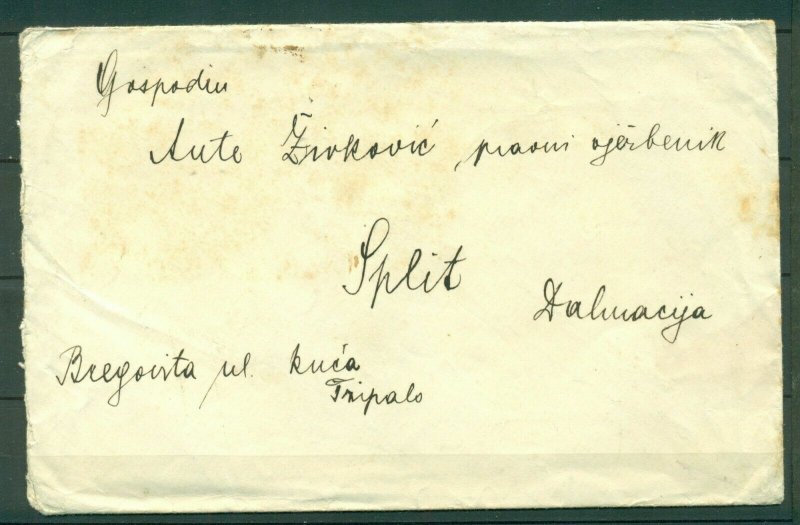 Gospodin
Ante Živković, pravni vježbenik
Split
Dalmacija
Bregovita ul. kuća
Tripalo